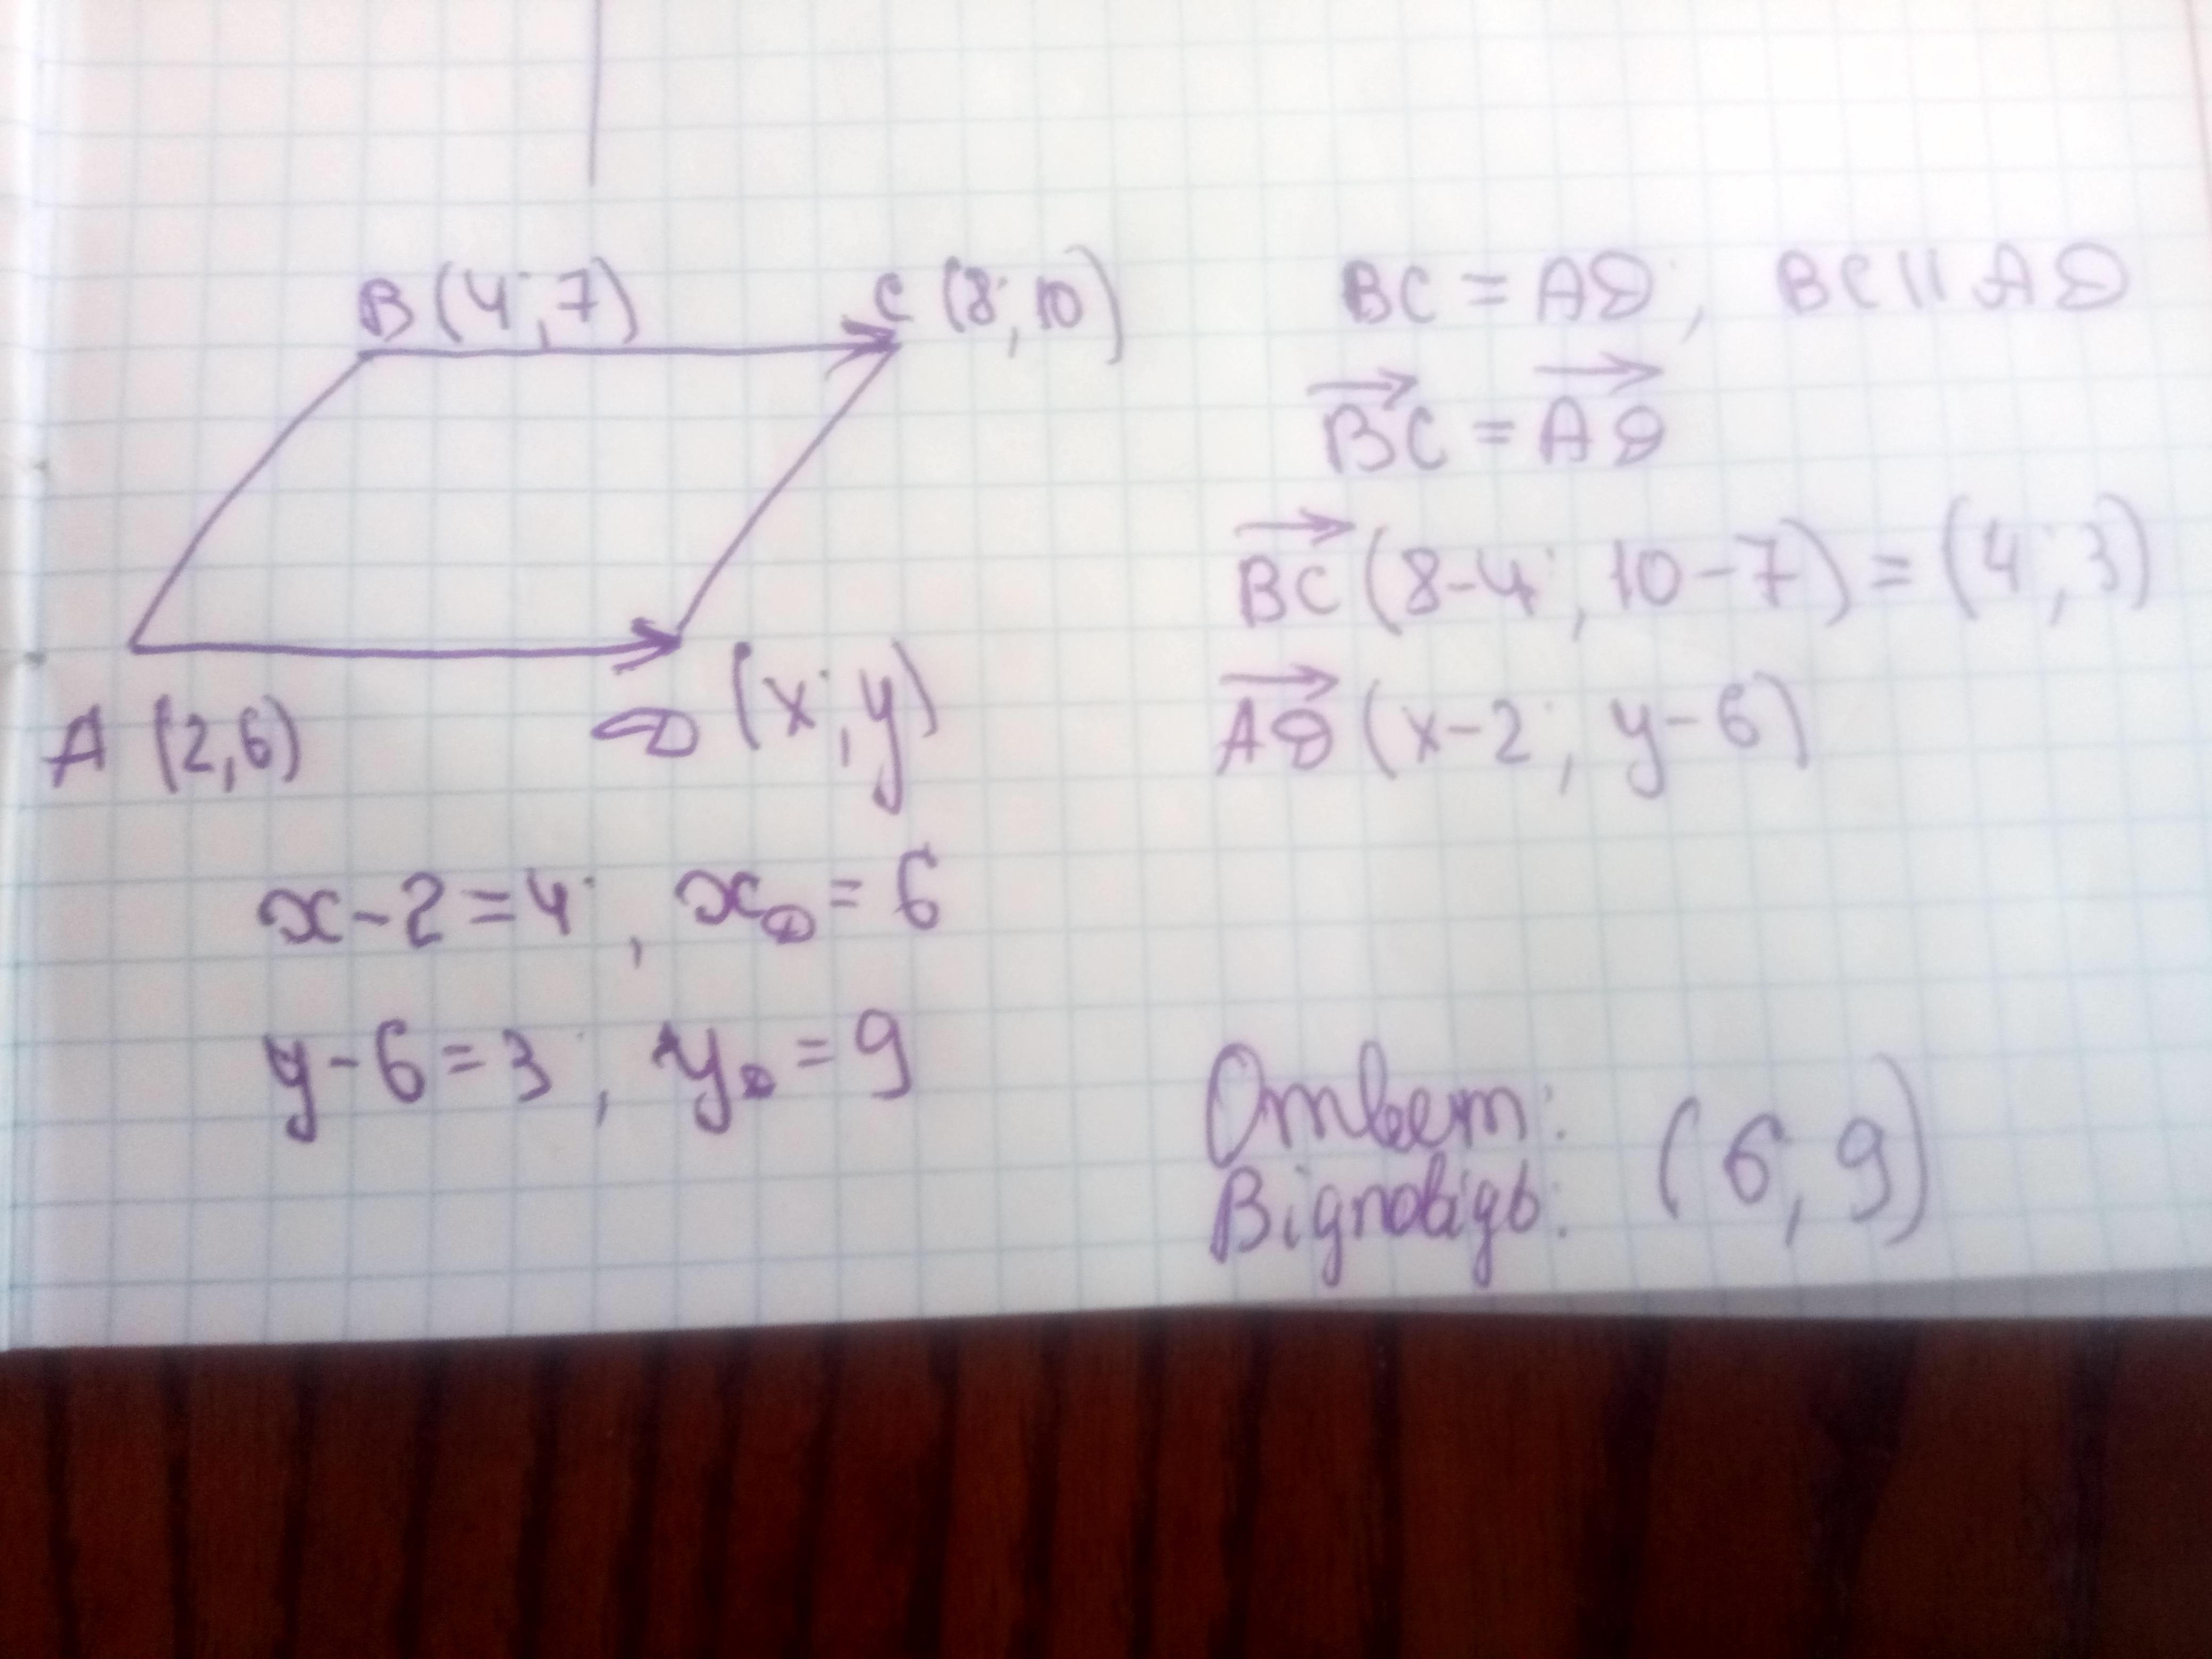 B (4; 7)
C (8; 10)
A (2, 6)
D (x; y)
BC = AD; BC || AD
BC = AD
BC (8-4; 10-7) = (4; 3)
AD (x-2; y-6)
x-2=4; x_D = 6
y-6=3; y_D = 9
Ответ:
Відповідь: (6, 9)